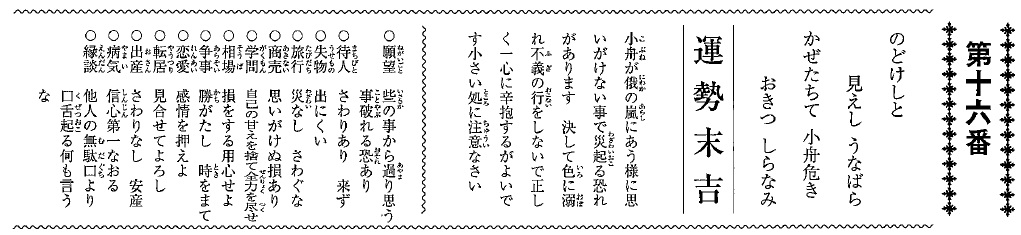 第十六番
のどけしと
見えし うなばら
かぜたちて 小舟危き
おきつ しらなみ
運勢末吉
小舟が俄の嵐にあう様に思
いがけない事で災起る恐れ
があります 決して色に溺
れ不義の行をしないで正し
く一心に辛抱するがよいで
す小さい処に注意なさい
○願望 些の事から過り思う
事破れる恐あり
○待人 さわりあり 来ず
○失物 出にくい
○旅行 災なし さわぐな
○商売 思いがけぬ損あり
○学問 自己の甘えを捨て全力を尽せ
○相場 損をする用心せよ
○争事 勝がたし 時をまて
○恋愛 感情を押えよ
○転居 見合せてよろし
○出産 さわりなし 安産
○病気 信心第一なおる
○縁談 他人の無駄口より
口舌起る何も言う
な